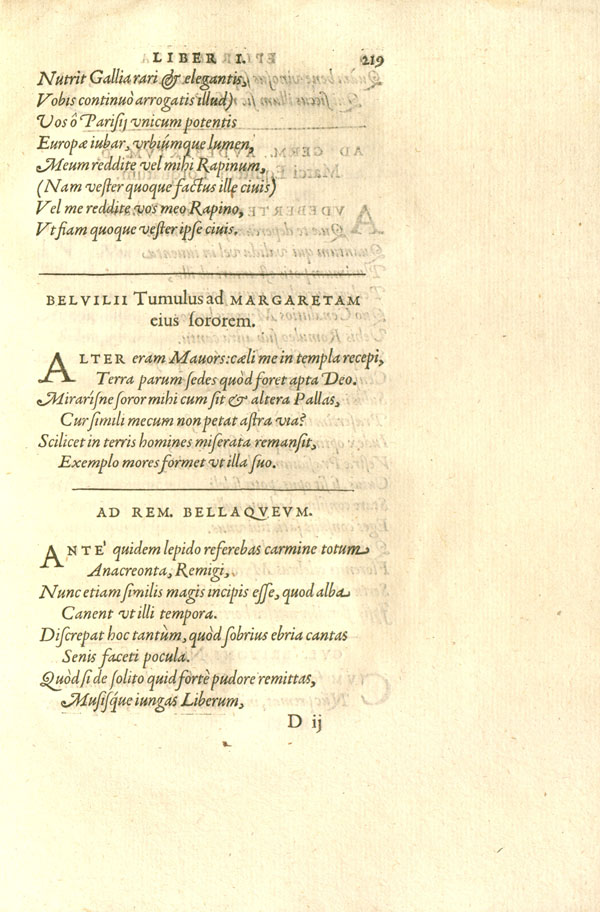 LIBER I. 219
Nutrit Gallia rari & elegantis,
Vobis continuò arrogatis illud)
Vos ô Parisij vnicum potentis
Europæ iubar, vrbiúmque lumen,
Meum reddite vel mihi Rapinum,
(Nam vester quoque factus ille ciuis)
Vel me reddite vos meo Rapino,
Vt fiam quoque vester ipse ciuis.
BELVILII Tumulus ad MARGARETAM
eius sororem.
ALTER eram Mauors: cæli me in templa recepi,
Terra parum sedes quòd foret apta Deo.
Mirarisne soror mihi cum sit & altera Pallas,
Cur simili mecum non petat astra via?
Scilicet in terris homines miserata remansit,
Exemplo mores formet vt illa suo.
AD REM. BELLAQVEVM.
ANTE' quidem lepido referebas carmine totum
Anacreonta, Remigi,
Nunc etiam similis magis incipis esse, quod alba
Canent vt illi tempora.
Discrepat hoc tantùm, quòd sobrius ebria cantas
Senis faceti pocula.
Quòd si de solito quid fortè pudore remittas,
Musisq́ue iungas Liberum,
D ij